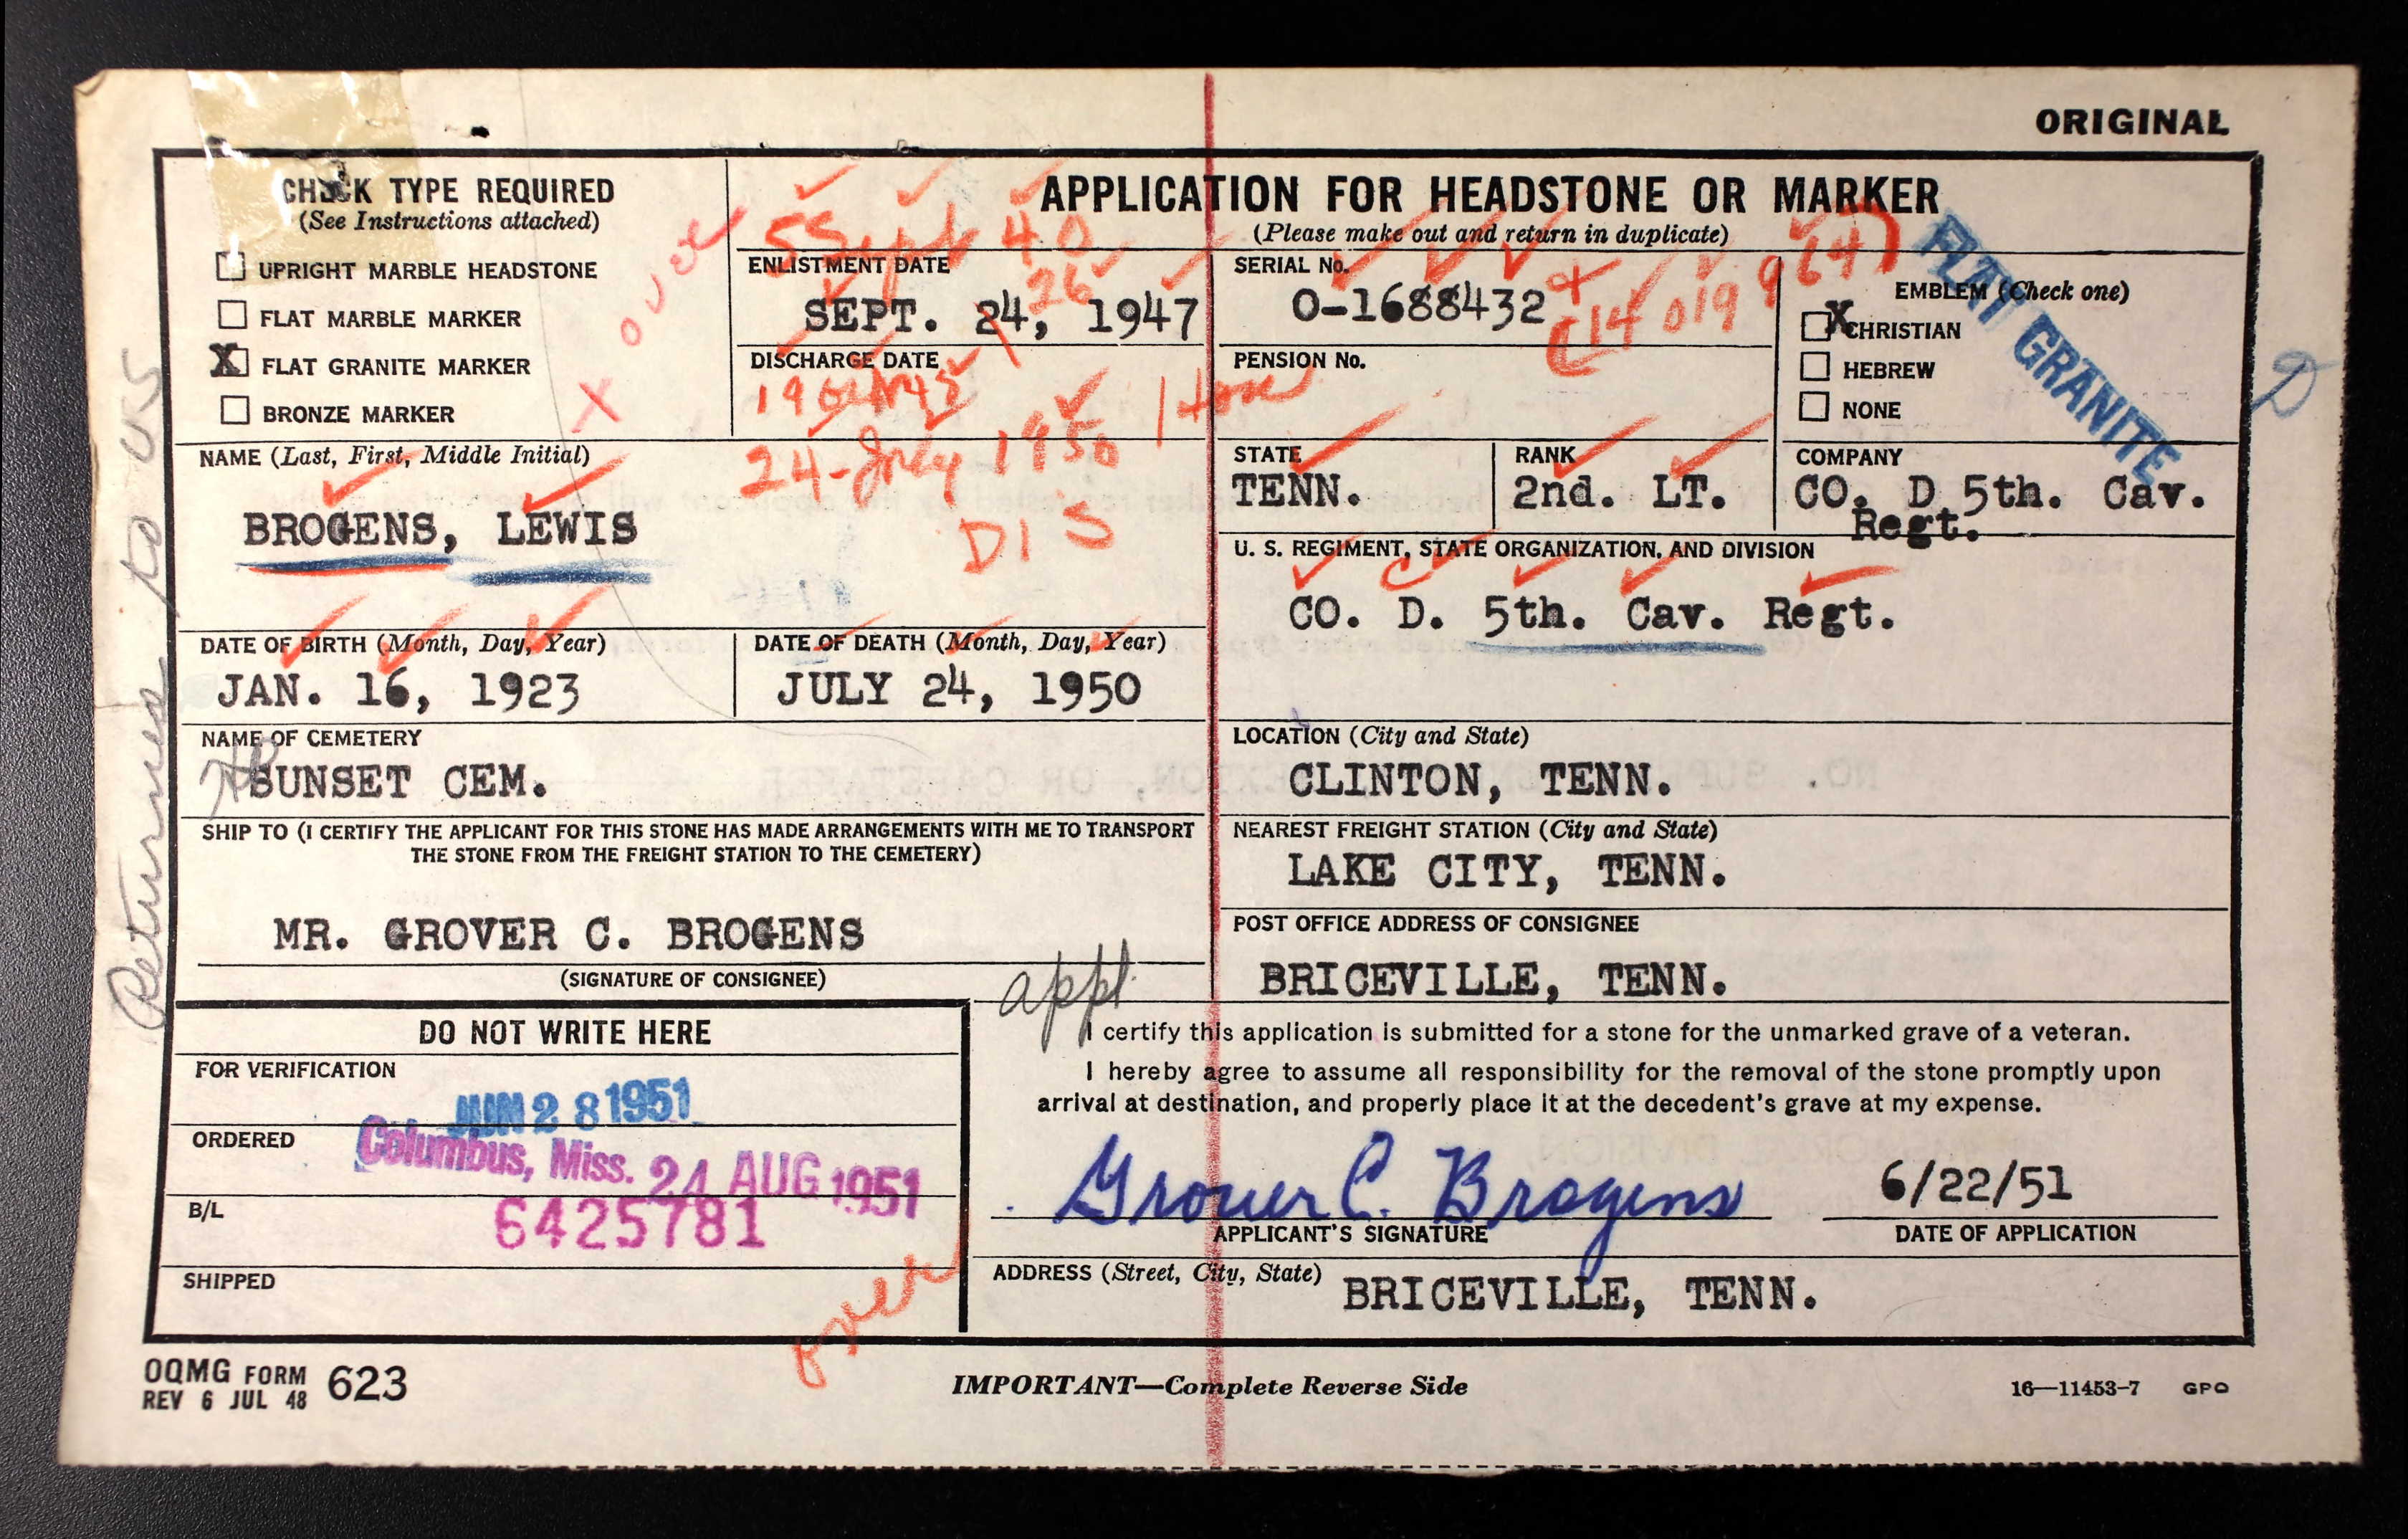 ORIGINAL
CHECK TYPE REQUIRED
(See Instructions attached)
UPRIGHT MARBLE HEADSTONE
FLAT MARBLE MARKER
X FLAT GRANITE MARKER
BRONZE MARKER
over
X
APPLICATION FOR HEADSTONE OR MARKER
(Please make out and return in duplicate)
5 Sept 40
ENLISTMENT DATE
26
SEPT. 24, 1947
DISCHARGE DATE
24-July 1950
DIS
SERIAL No.
O-1688432
PENSION No.
EMBLEM (Check one)
X CHRISTIAN
HEBREW
NONE
FLAT GRANITE
D
NAME (Last, First, Middle Initial)
BROGENS, LEWIS
STATE
TENN.
RANK
2nd. LT.
COMPANY
CO. D 5th. Cav.
Regt.
U. S. REGIMENT, STATE ORGANIZATION, AND DIVISION
CO. D. 5th. Cav. Regt.
DATE OF BIRTH (Month, Day, Year)
JAN. 16, 1923
DATE OF DEATH (Month, Day, Year)
JULY 24, 1950
NAME OF CEMETERY
SUNSET CEM.
LOCATION (City and State)
CLINTON, TENN.
SHIP TO (I CERTIFY THE APPLICANT FOR THIS STONE HAS MADE ARRANGEMENTS WITH ME TO TRANSPORT
THE STONE FROM THE FREIGHT STATION TO THE CEMETERY)
MR. GROVER C. BROGENS
(SIGNATURE OF CONSIGNEE)
NEAREST FREIGHT STATION (City and State)
LAKE CITY, TENN.
POST OFFICE ADDRESS OF CONSIGNEE
BRICEVILLE, TENN.
appl.
DO NOT WRITE HERE
FOR VERIFICATION
JUN 28 1951
ORDERED
Columbus, Miss. 24 AUG 1951
B/L
6425781
SHIPPED
over
I certify this application is submitted for a stone for the unmarked grave of a veteran.
I hereby agree to assume all responsibility for the removal of the stone promptly upon
arrival at destination, and properly place it at the decedent's grave at my expense.
Grover C. Brogens
6/22/51
APPLICANT'S SIGNATURE
DATE OF APPLICATION
ADDRESS (Street, City, State)
BRICEVILLE, TENN.
OQMG FORM 623
REV 6 JUL 48
IMPORTANT—Complete Reverse Side
16—11453-7 GPO
to us